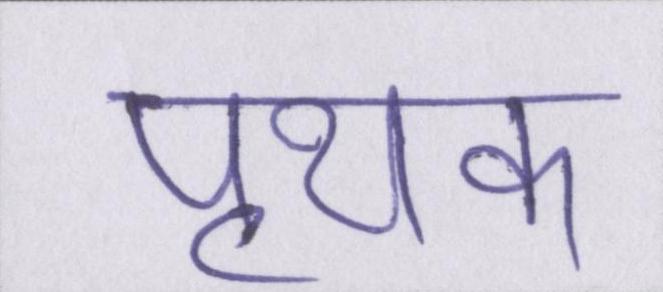 पृथक